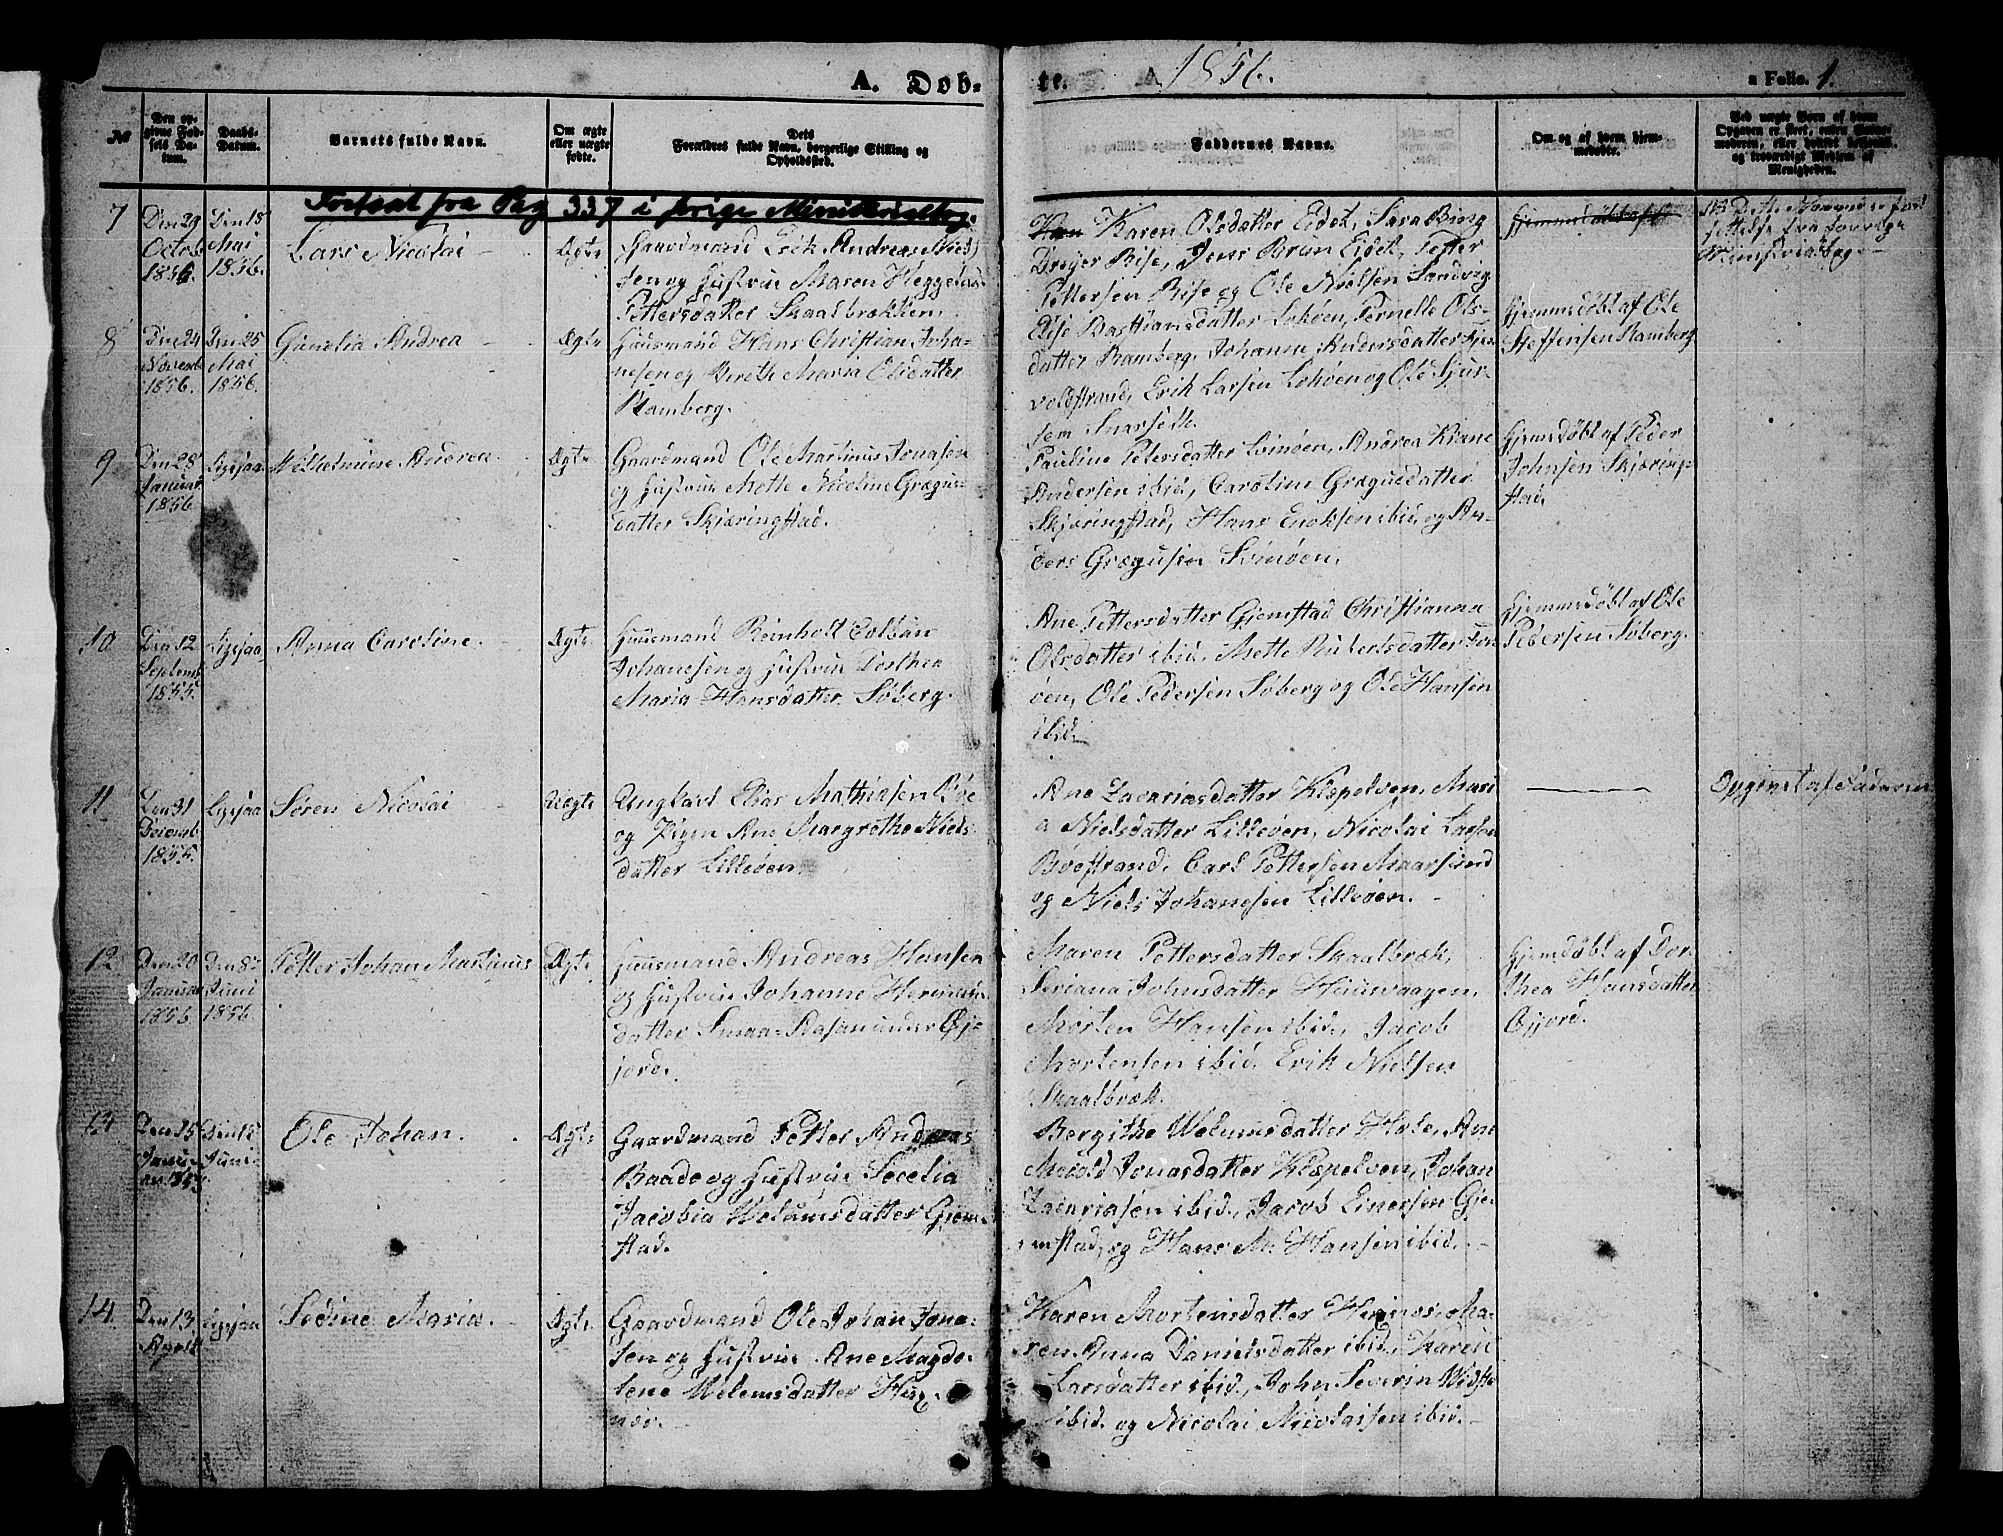 A. Døb-
te. 1856. a Folio. 1.
№
Den op-
givne Fød-
sels Da-
tum.
Daabs-
Datum.
Barnets fulde Navn.
Om ægte
eller uægte
fødte.
Dets
Forældres fulde Navn, borgerlige Stilling og
Opholdssted.
Faddernes Navne.
Om og af hvem hjem-
medøbte.
Ved uægte Børn af hvem
Opgaven er skeet, enten
moderen, eller
og troværdigt Medlem af
Menigheden.
Fortsat fra Pag 337 i forige Ministerialbog.
7
Den 29
Octob
1856
Den 18
Mai
1856.
Lars Nicolai
Ægte
Gaardmand Erik Andreas Niel-
sen og Hustrue Maren Heggelund
Pettersdatter Skaalbrækken.
Karen Olsdatter Eidet, Sara Bing
Dreyer Rise, Jens Brun Eidet, Petter
Pettersen Rise og Ole Nielsen Sandvig
Hjemmedøbt af
NB Dette Nummer er fort
settelse fra forrige
Ministrialbog
8
Den 24
Novemb
1856.
Den 25
Mai
1856.
Gunelia Andrea
Ægte
Huusmand Hans Christian Joha-
nesen og Bereth Maria Olsdatter
Ramberg.
Elise Bastiansdatter Lohøen, Pernelle Ols-
datter Ramberg, Johanna Andersdatter
voldstrand, Erik Larsen Lohøen og Ole Sjur-
sen Snarset
Hjemmedøbt af Ole
Steffensen Ramberg
9
Den 28
Januar
1856
Ligesaa
Wilhelmine Andrea
Ægte
Gaardmand Ole Martinus Jonasen
og Hustrue Mette Nicoline Grægus-
datter Skjæringstad.
Pauline Petersdatter Svinøen, Andrea Krane
Andersen ibid, Caroline Græguesdatter
Skjæringstad, Hans Enoksen ibid og An-
ders Græguesen Svinøen.
Hjemmedøbt af Peder
Johnsen Skjæring-
stad.
10
Den 12
Septemb
1855
Ligesaa
Anna Caroline
Ægte
Huusmand Reinholt Colban
Johanesen og Hustrue Dorthea
Maria Hansdatter Søberg.
Ane Pettersdatter Gjemstad Christianna
Olsdatter ibid. Mette Rubertsdatter
øen, Ole Pedersen Søberg og Ole Hansen
ibid.
Hjemmedøbt af Ole
Pedersen Søberg.
11
Den 31
Decemb
1855.
Ligesaa
Søren Nicolai
Uægte
Ungkarl Elias Mathiasen Bøe
og Pigen Ane Margrethe Niels-
datter Lilleøen
Ane Zacariasdatter Klæpelven, Mari
a Nielsdatter Lilleøen, Nicolai Larsen
Bøestrand. Carl Pettersen Maarsund
og Niels Johanesen Lilleøen.
Opgivet af Faderen
12
Den 20
Januar
1856
Den 8de
Juni
1856.
Petter Johan Martinus
Ægte
Huusmand Andreas Hansen
og Hustrue Johanne Herman-
datter Smaa-Stasan under Øx-
jord.
Maren Pettersdatter Skaalbræk,
Seriana Johnsdatter Huusvaagen,
Morten Hansen ibid, Jacob
Mortensen ibid. Erik Nielsen
Skaalbræk.
Hjemdøbt af Dor-
thea Hansdatter
Oxjord.
Den 15
Janu-
Juni
Ole Johan.
Ægte
Gaardmand Petter Andreas
Baade og Hustrue Secelia
Jacobia Welumsdatter Gjem-
stad.
Bergithe Welumsdatter Hole, Ane
Jonasdatter Klæpelven, Johan
Zacariasen ibid, Jacob Einersen Gje-
mstad, og Hans M. Hansen ibid.
14
Den 13
April
Ligesaa
Sedine Maria.
Ægte
Gaardmand Ole Johan Jona-
sen og Hustrue Ane Magde-
lene Welumsdatter
Karen Mortensdatter
Anna Danielsdatter ibid. Karen
Larsdatter ibid, John Severin
ibid. og Nicolai Nicolaisen ibid.